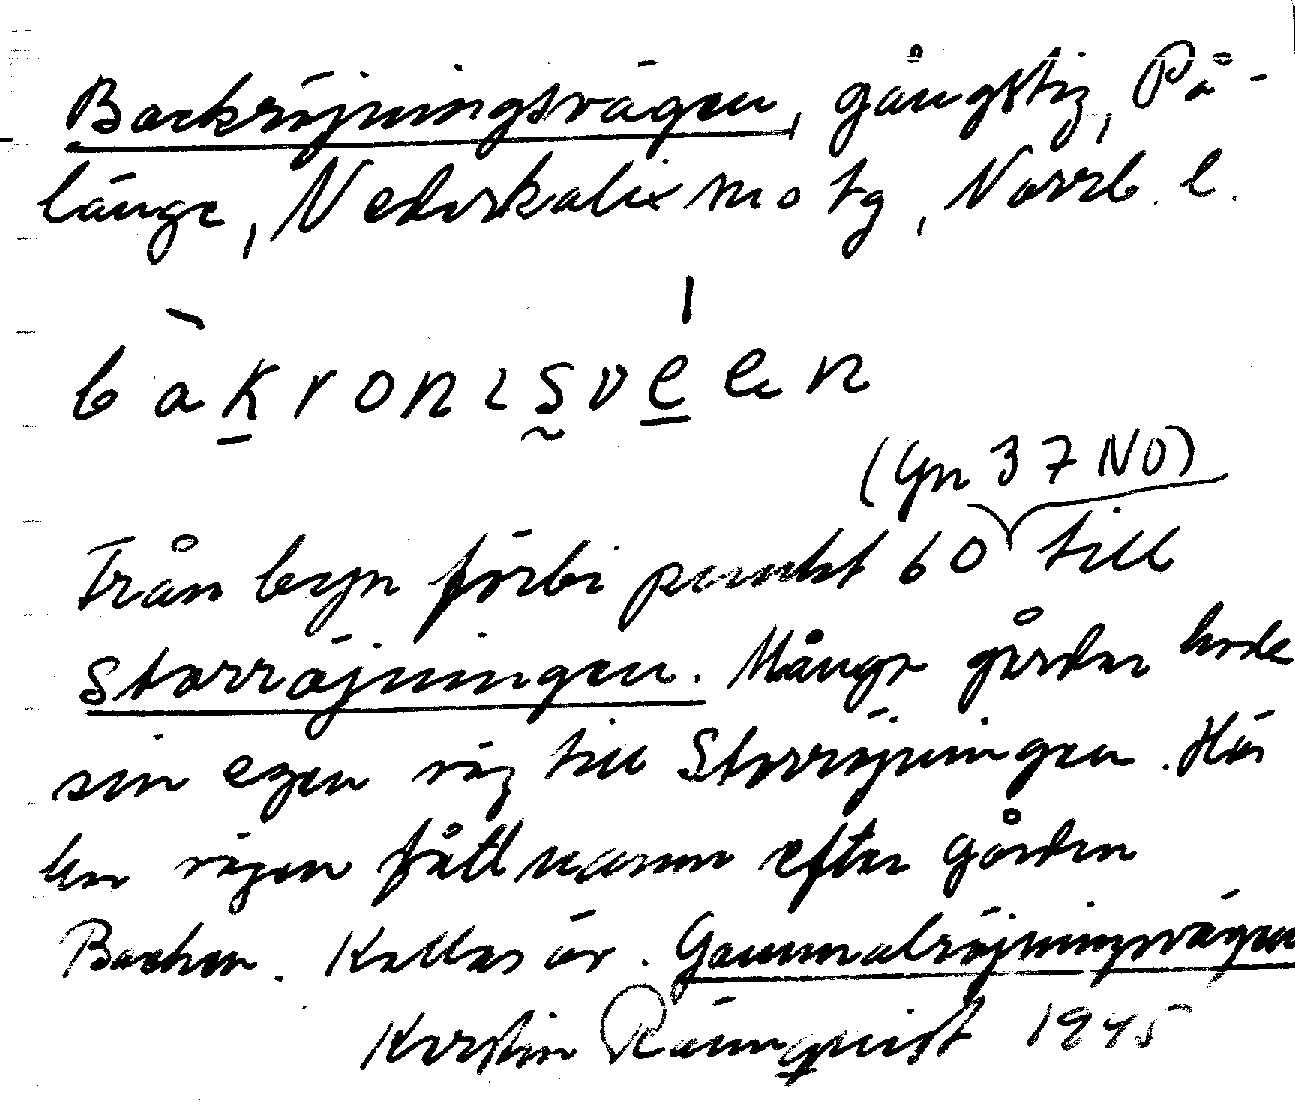 Backröjningsvägen, gångstig, På-
länge, Nederkalix sn o tg, Norrb. l.
bàkronɪsvéen
(Gn 37 NO)
Från byn förbi punkt 60 till
Storröjningen. Många gårdar hade
sin egen väg till Storröjningen. Här
har vägen fått namn efter gården
Backen. Kallas äv. Gammalröjningsvägen
Kerstin Rännquist 1945